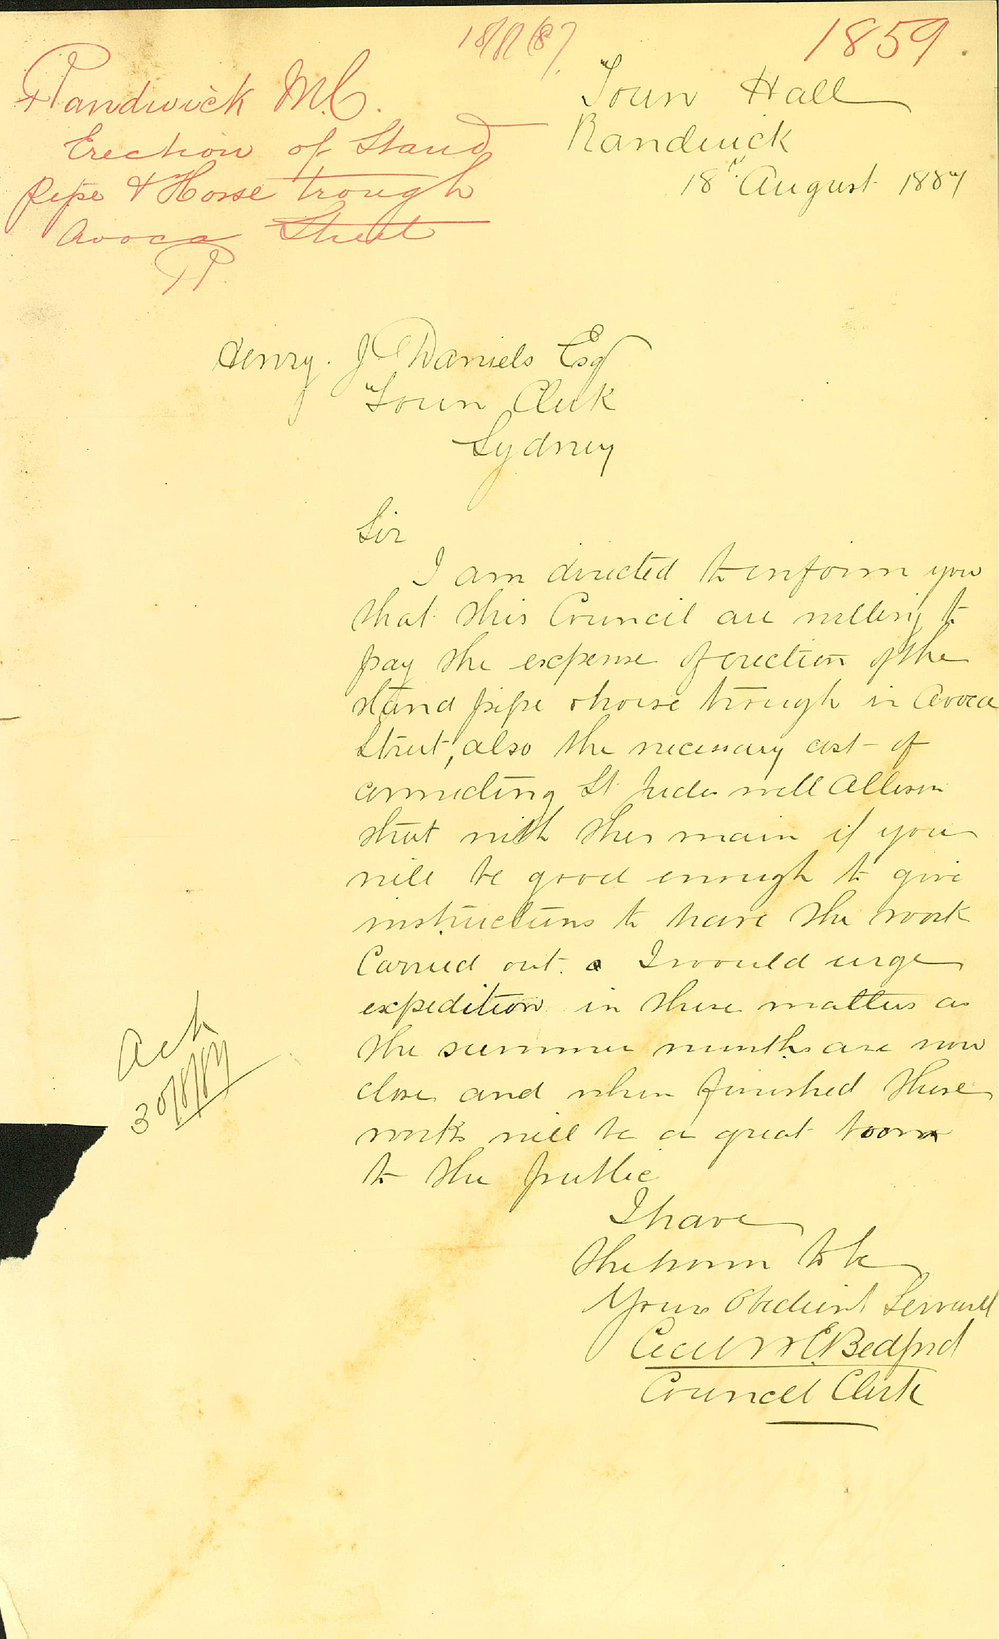 18/8/87.
1859.
Randwick M.C.
Erection of Stand
pipe & Horse trough
Avoca Street
Town Hall
Randwick
18th August 1887
Henry. J Daniels Esq
Town Clerk
Sydney
Sir
I am directed to inform you
that this Council are willing to
pay the expense of erection of the
stand pipe & horse trough in Avoca
Street, also the necessary cost of
connecting St Judes well Allison
Street with this main if you
will be good enough to give
instructions to have the work
Carried out. I would urge
expedition in these matters as
the summer months are now
close and when finished these
works will be a great boon
to the public
I have
the honor to be
Your Obedient Servant
Cecil W E. Bedford
Council Clerk
Ack
30/8/87